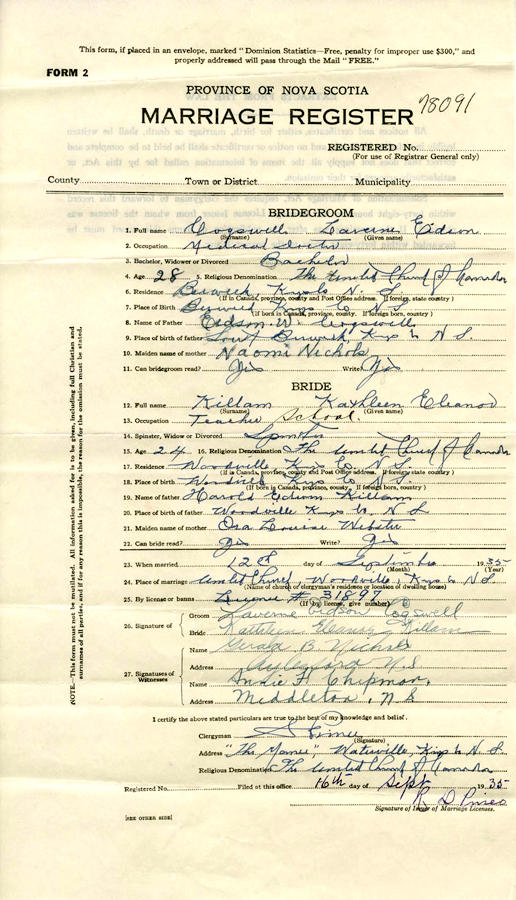 This form, if placed in an envelope, marked "Dominion Statistics—Free, penalty for improper use $300," and
properly addressed will pass through the Mail "FREE."
FORM 2
PROVINCE OF NOVA SCOTIA
MARRIAGE REGISTER 78091
REGISTERED No.
(For use of Registrar General only)
County Town or District Municipality
BRIDEGROOM
1. Full name Cogswell Laverne Eidson
(Surname) (Given name)
2. Occupation Medical Doctor
3. Bachelor, Widower or Divorced Bachelor
4. Age 28 5. Religious Denomination The United Church of Canada
6. Residence Berwick Kings Co N. S.
(If in Canada, province, county and Post Office address. If foreign, state country)
7. Place of Birth Berwick Kings Co N S
(If born in Canada, province, county. If foreign born, country)
8. Name of Father Eidson W. Cogswell
9. Place of birth of father Berwick Kings Co N S.
10. Maiden name of mother Naomi Nichols
11. Can bridegroom read? Yes Write? Yes
BRIDE
12. Full name Killam Kathleen Eleanor
(Surname) (Given name)
13. Occupation Teacher School.
14. Spinster, Widow or Divorced Spinster
15. Age 24 16. Religious Denomination The United Church of Canada
17. Residence Woodville Kings Co N. S.
(If in Canada, province, county and Post Office address. If foreign, state country)
18. Place of birth Woodville Kings Co N. S
(If born in Canada, province, county. If foreign born, country)
19. Name of father Harold Killam
20. Place of birth of father Woodville Kings Co. N S
21. Maiden name of mother Louise Webster
22. Can bride read? Yes Write? Yes
23. When married 12th day of September 1935
(Month) (Year)
24. Place of marriage United Church, Woodville, Kings Co N. S.
(Name of church or clergyman's residence or location of dwelling house)
25. By license or banns License # 31897
(If by license, give number)
26. Signature of Groom Laverne Eidson Cogswell
Bride Kathleen Eleanor Killam
27. Signatures of Witnesses
Name Gerald B. Nichols
Address Aylesford N S
Name F. Chipman,
Address Middleton, N S
I certify the above stated particulars are true to the best of my knowledge and belief.
Clergyman
(Signature)
Address "The Manse", Waterville, Kings Co N. S.
Religious Denomination The United Church of Canada
Registered No. Filed at this office 16th day of Sept 1935
R D Pineo
Signature of Issuer of Marriage Licenses.
[SEE OTHER SIDE]
NOTE.—This form must not be mutilated. All information asked for is to be given, including full Christian and
surnames of all parties, and if for any reason this is impossible, the reason for the omission must be stated.